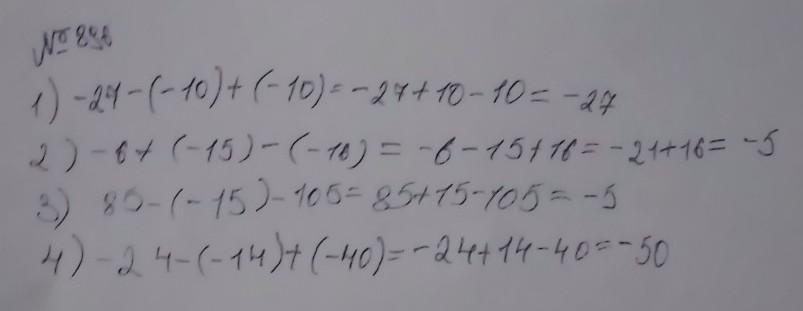 № 296
1) -27-(-10)+(-10)=-27+10-10=-27
2) -6+(-15)-(-16)=-6-15+16=-21+16=-5
3) 85-(-15)-105=85+15-105=-5
4) -24-(-14)+(-40)=-24+14-40=-50